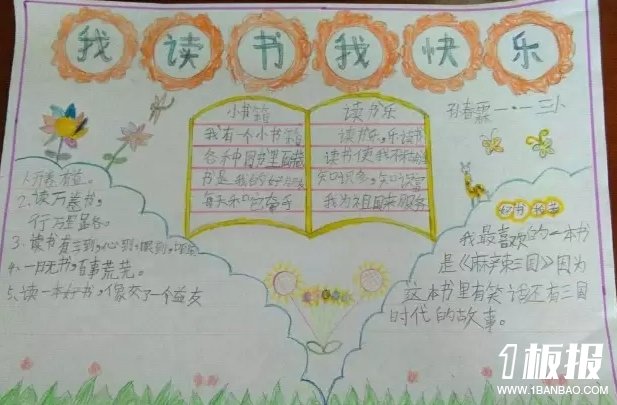 我读书我快乐
小书箱
我有一个小书箱
各种图书里面藏
书是我的好朋友
每天和
读书乐
读书乐,乐读书
读书使我
知识多,知识富
我为祖国来服务
孙春霖 一·一 三小
1、开卷有益。
2、读万卷书,
行万里路。
3、读书有三到,心到,眼到,口到
4、一日无书,百事荒芜。
5、读一本好书,像交了一个益友
好书推荐
我最喜欢的一本书
是《麻辣三国》因为
这本书里有笑话还有三国
时代的故事。
1板报
WWW.1BANBAO.COM